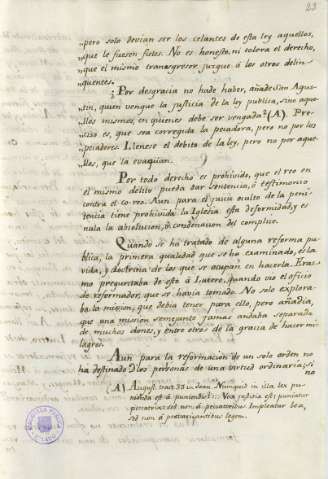 23
pero solo devian ser los celantes de esta ley aquellos,
que le fuesen fieles. No es honesto, ni tolera el derecho,
que el mismo transgresor juzgue á los otros delin-
quentes.
¿Por desgracia no hade haber, añade Sn Agus-
tin, quien vengue la justicia de la ley publica, sino aque-
llos mismos, en quienes debe ser vengada? (A). Pre-
ciso es, que sea corregida la pecadora, pero no por los
pecadores. Llenese el debito de la ley, pero no por aque-
llos, que la evaquan.
Por todo derecho es prohivido, que el reo en
el mismo delito pueda dar sentencia, ó testimonio
contra el co-reo. Aun para el juicio oculto de la peni-
tencia tiene prohivida la Iglesia esta deformidad, y es
nula la absolucion, ó condenacion del complice.
Quando se há tratado de alguna reforma pu-
blica, la primera qualidad que se ha examinado, es la
vida, y doctrina de los que se ocupan en hacerla. Eras-
mo preguntaba de esto á Lutero, quando vio el oficio
de reformador, que se havia tomado. No solo explora-
ba la mision, que debia tener para ello, pero añadia,
que una mision semejante jamas andaba separada
de muchos dones, y entre otros de la gracia de hacer mi-
lagros.
Aun para la reformacion de un solo orden no
ha destinado Dios personas de una virtud ordinaria; si
no
(A) August. tract. 33 in Joan. Numquid in vita lex pu-
nienda est á puniendis? Vox justitiæ est: puniatur
peccatrix: sed non á peccatoribus. Impleatur lex,
sed non á prevaricatoribus legem.